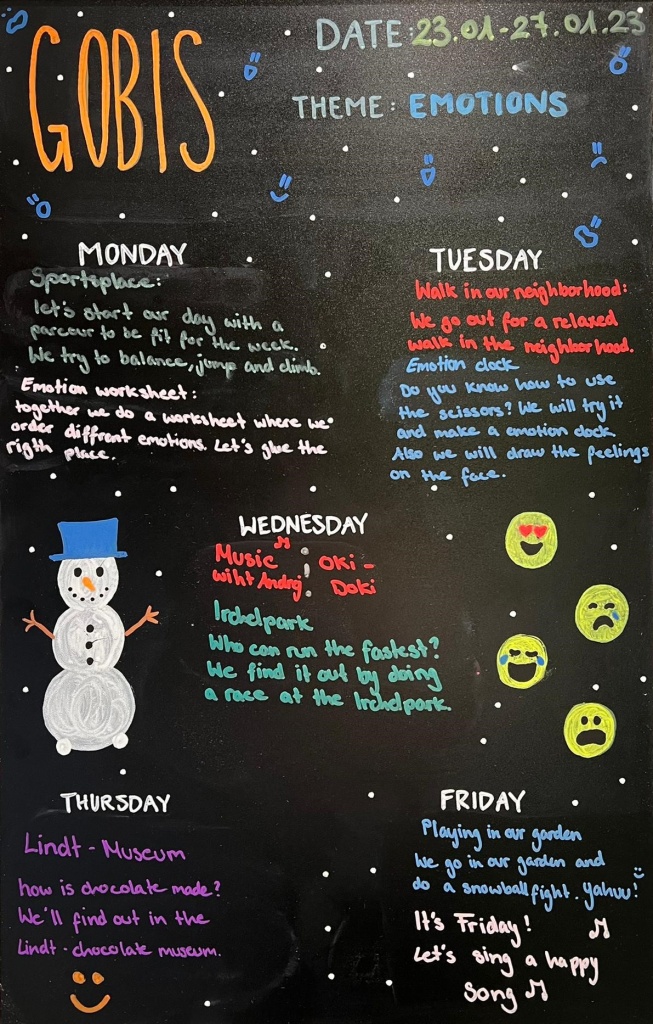 GOBIS
DATE: 23.01-27.01.23
THEME: EMOTIONS
MONDAY
Sportsplace:
let's start our day with a
parcour to be fit for the week.
We try to balance, jump and climb.
Emotion worksheet:
together we do a worksheet where we
order diffrent emotions. Let's glue the
rigth place.
TUESDAY
Walk in our neighborhood:
We go out for a relaxed
walk in the neighborhood.
Emotion clock
Do you know how to use
the scissors? We will try it
and make a emotion clock
Also we will draw the feelings
on the face.
WEDNESDAY
Music : Oki-
wiht Andrej Doki
Irchelpark
Who can run the fastest?
We find it out by doing
a race at the Irchelpark.
THURSDAY
Lindt - Museum
how is chocolate made?
We'll find out in the
Lindt - chocolate museum.
FRIDAY
Playing in our garden
We go in our garden and
do a snowballfight. Yahuu!
It's Friday!
Let's sing a happy
song